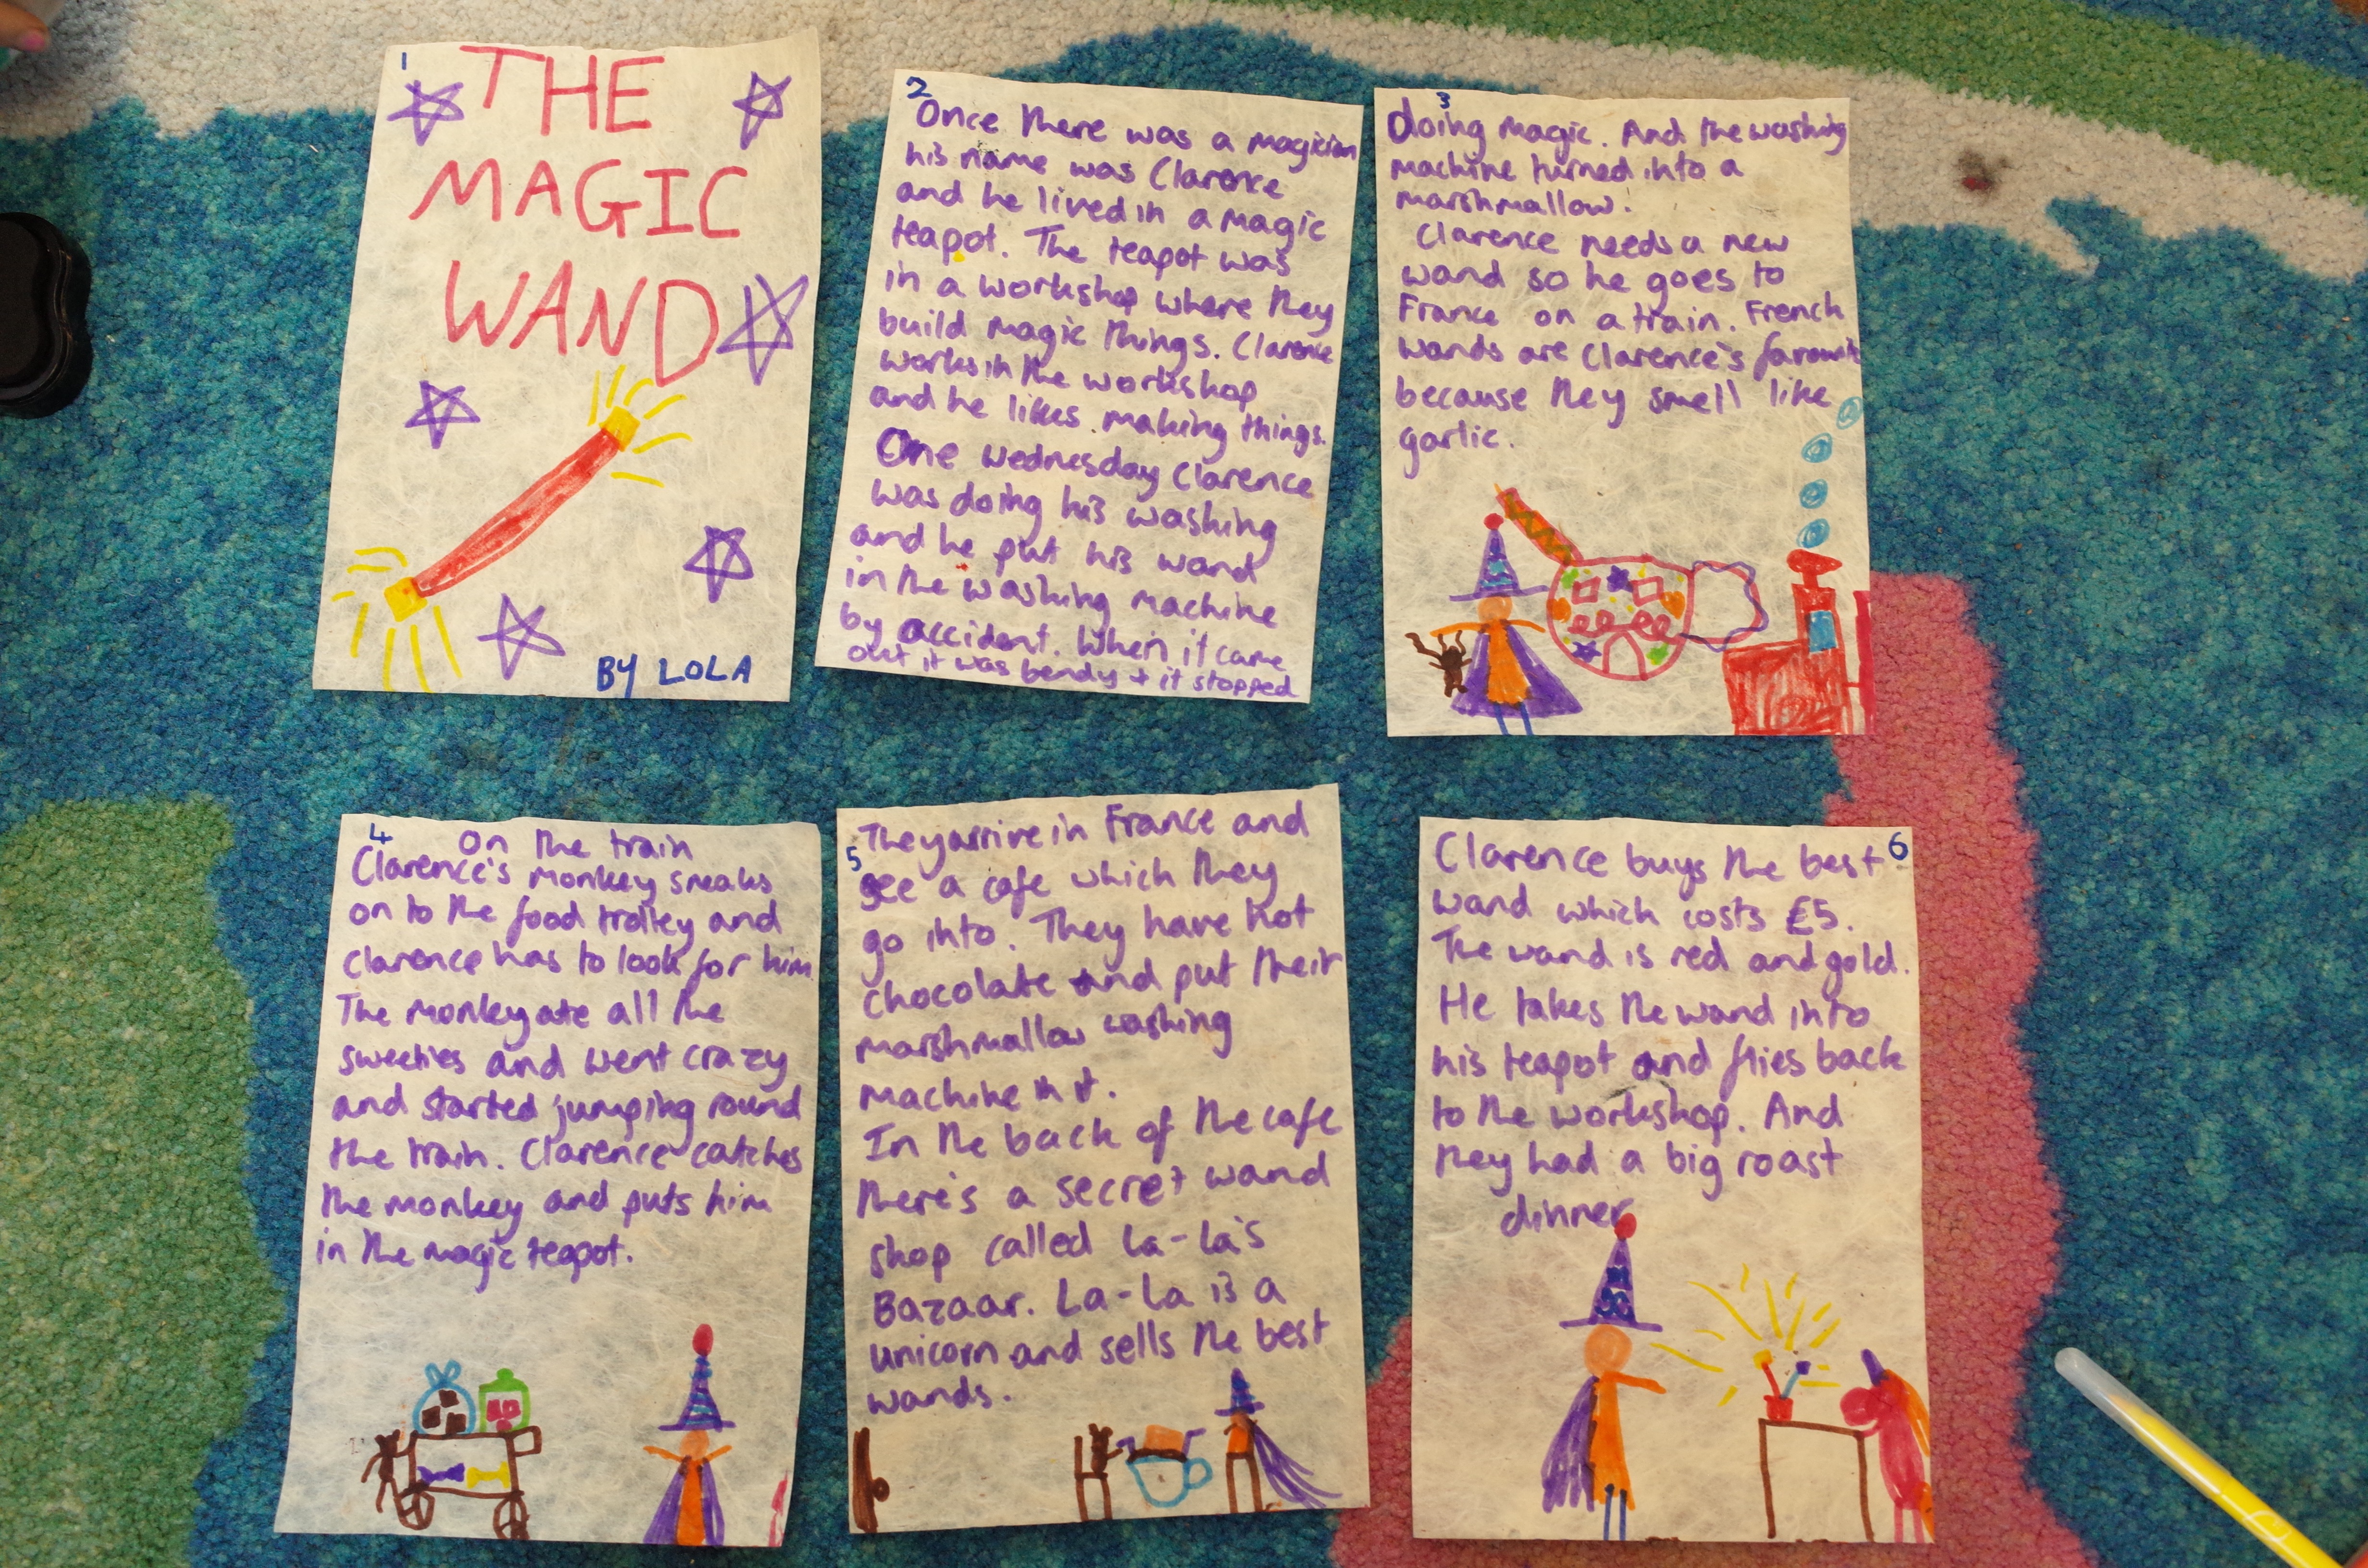 1
THE
MAGIC
WAND
BY LOLA
2
Once there was a magician
his name was Clarence
and he lived in a magic
teapot. The teapot was
in a workshop where they
build magic things. Clarence
works in the workshop
and he likes making things.
One Wednesday Clarence
was doing his washing
and he put his wand
in the washing machine
by accident. When it came
out it was bendy + it stopped
3
doing magic. And the washing
machine turned into a
marshmallow.
Clarence needs a new
wand so he goes to
France on a train. French
wands are Clarence's favourite
because they smell like
garlic.
4
On the train
Clarence's monkey sneaks
on to the food trolley and
Clarence has to look for him.
The monkey ate all the
sweeties and went crazy
and started jumping round
the train. Clarence catches
the monkey and puts him
in the magic teapot.
5
They arrive in France and
see a cafe which they
go into. They have hot
chocolate and put their
marshmallow washing
machine in it.
In the back of the cafe
there's a secret wand
shop called La-La's
Bazaar. La-La is a
unicorn and sells the best
wands.
6
Clarence buys the best
wand which costs £5.
The wand is red and gold.
He takes the wand into
his teapot and flies back
to the workshop. And
they had a big roast
dinner